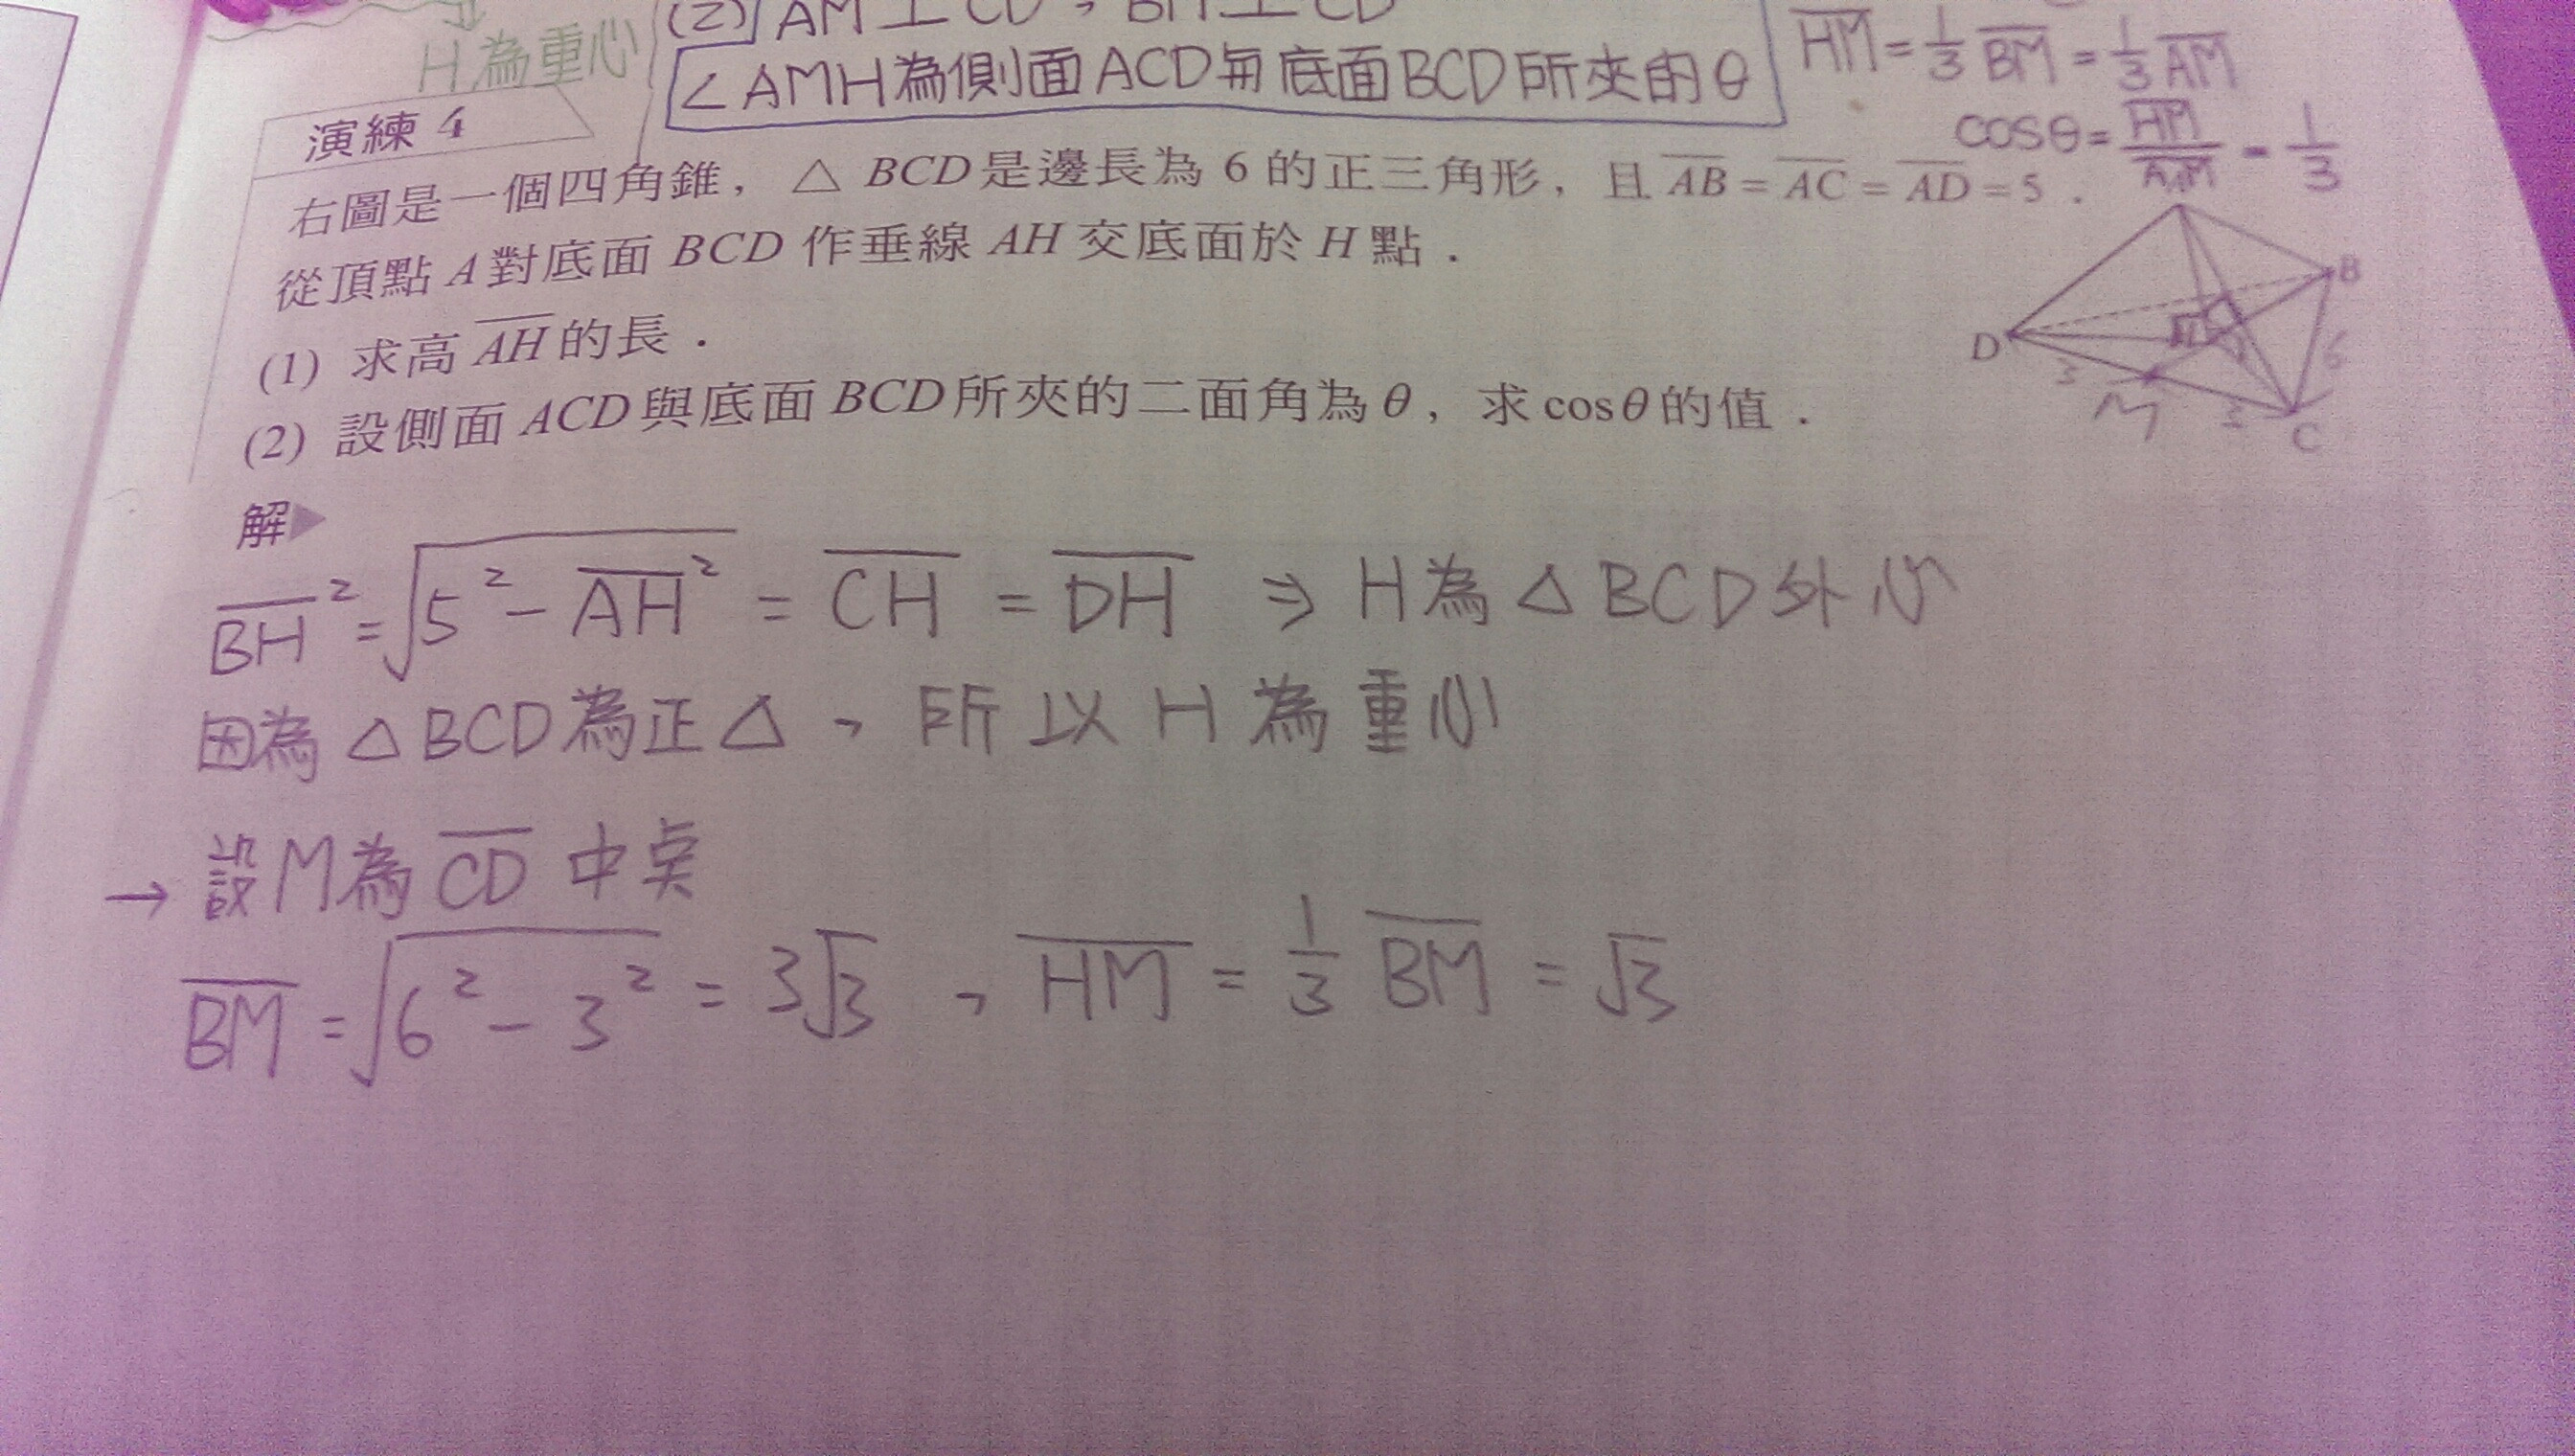 (2) AM ⊥ CD , BM ⊥ CD
H 為重心
∠AMH為側面ACD與底面BCD所夾的θ
HM = 1/3 BM = 1/3 AM
cosθ = HM/AM = 1/3
演練 4
右圖是一個四角錐，△BCD是邊長為 6 的正三角形，且 AB = AC = AD = 5．
從頂點 A 對底面 BCD 作垂線 AH 交底面於 H 點．
(1) 求高 AH 的長．
(2) 設側面 ACD 與底面 BCD 所夾的二面角為 θ，求 cosθ 的值．
B
D
H
6
3
M
3
C
解▶
BH² = √(5² − AH²) = CH = DH ⇒ H 為 △BCD 外心
因為 △BCD 為正△，所以 H 為重心
→ 設 M 為 CD 中點
BM = √(6² − 3²) = 3√3 ， HM = 1/3 BM = √3